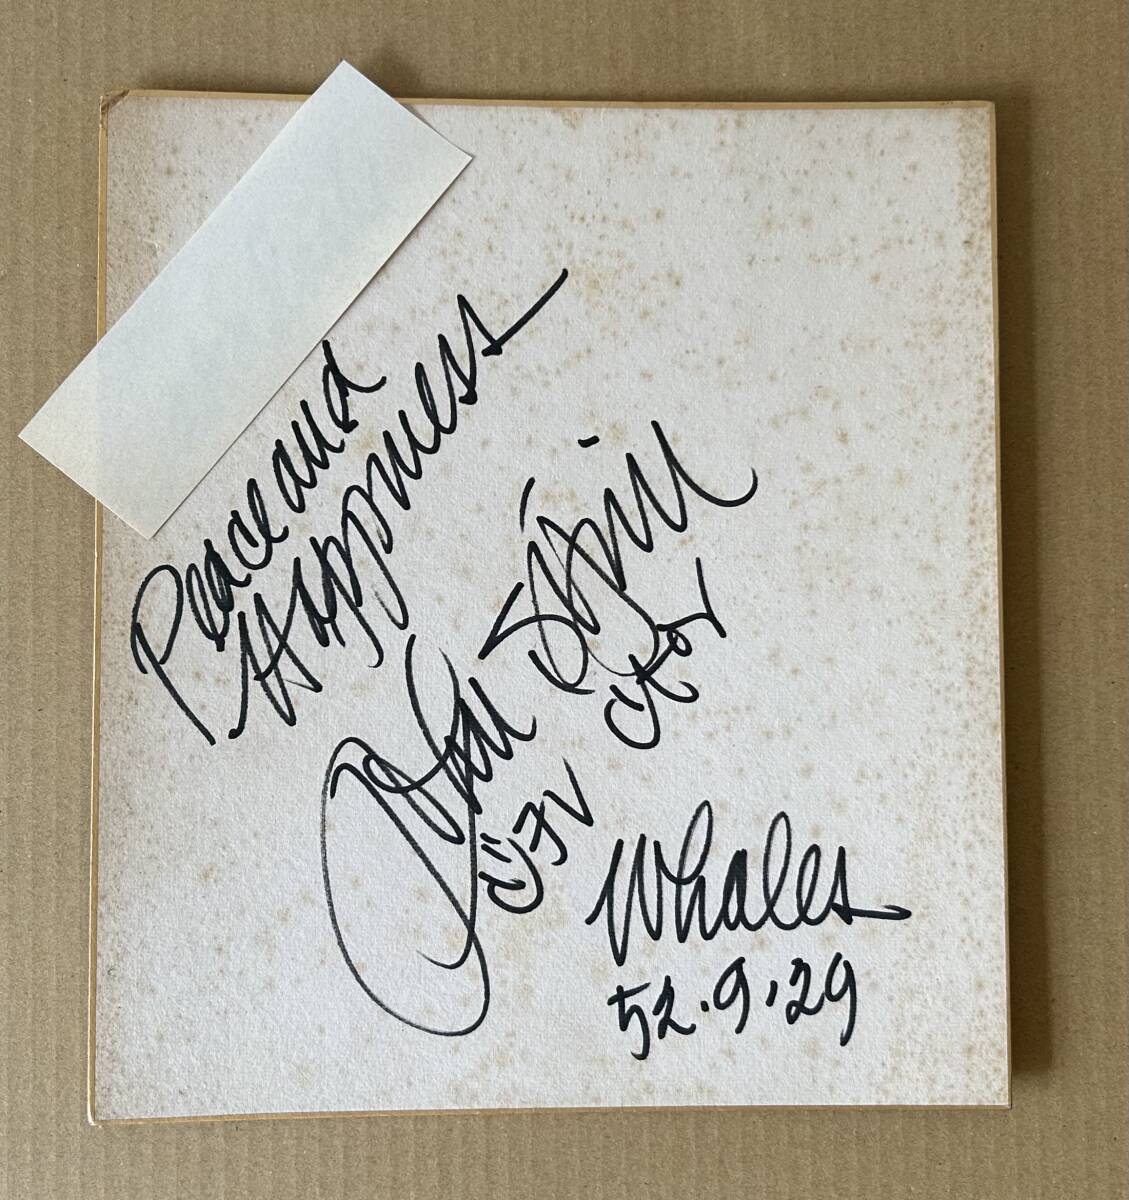 Peace and
Happiness
John Sipin
Whales
52.9.29